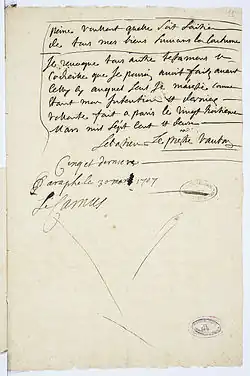 peine voulant quelle soit saisie
de tous mes biens suivant la Coutume
Je revoque tous autre testamens &
Codicille que je pourois avoir fait avant
celluy cy auquel seul je marreste comme
etant mon intention et derniere
volonté fait a paris le vingt troisieme
Mars mil sept cent et deux
Sebastien Le prestre Vauban
Cinq et derniere
Paraphé le 30 mars 1707